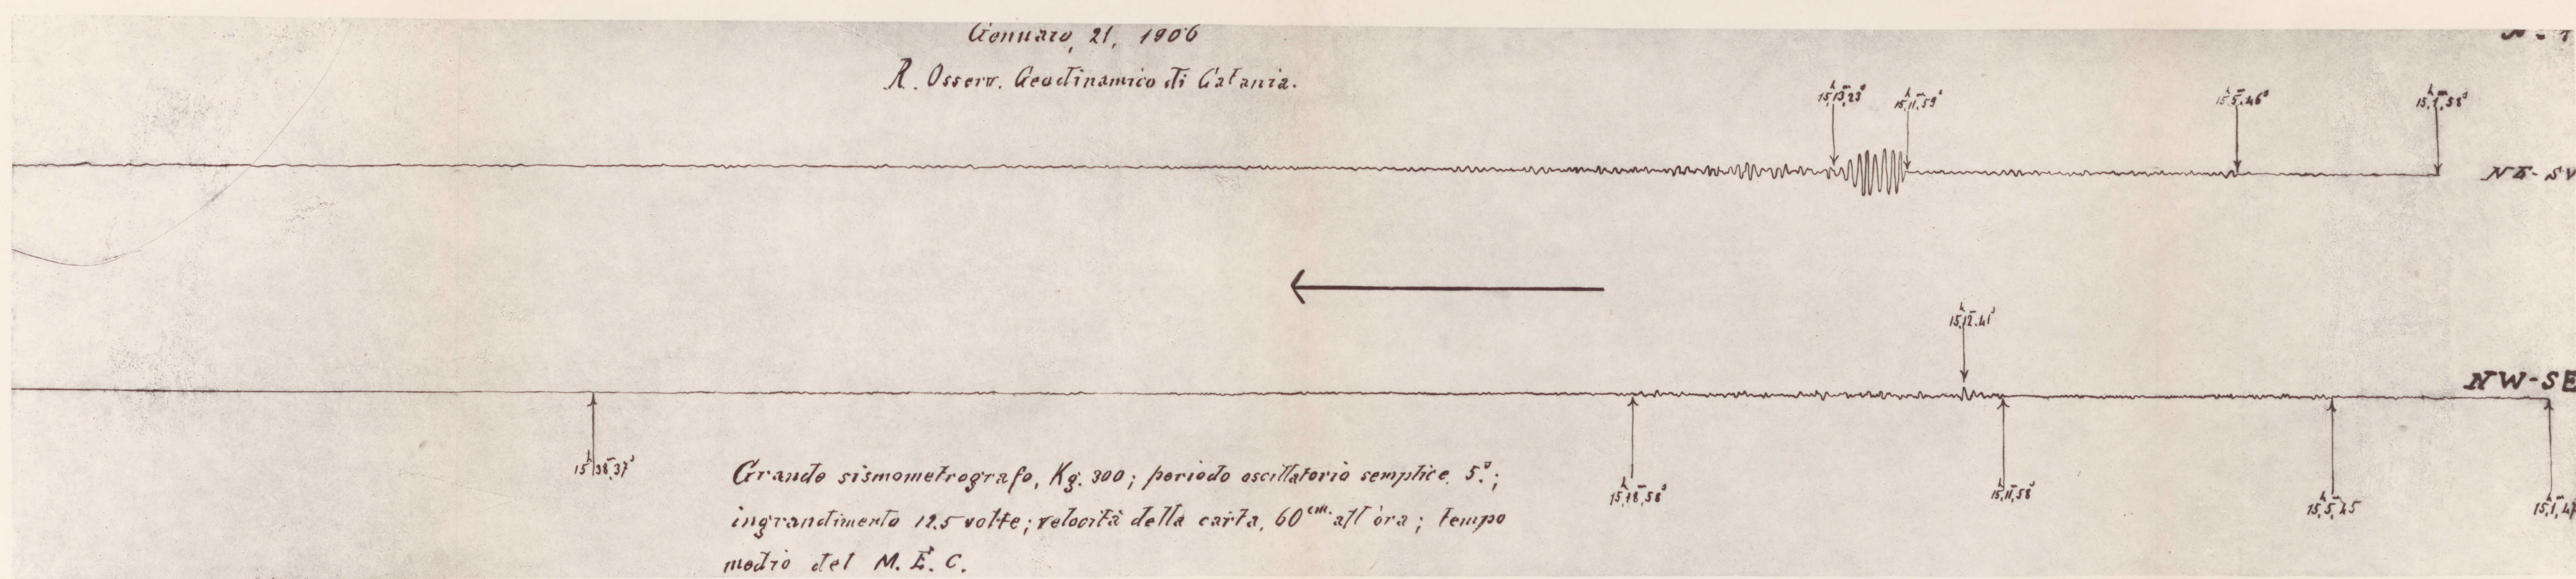 Gennaro, 21, 1906
R. Osserv. Geodinamico di Catania.
15h,13m,23s 15h,11m,59s 15h,5m,46s 15h,1m,58s
NE-SV
15h,12m,41s
NW-SE
15h,38m,37s 15h,18m,58s 15h,11m,58s 15h,5m,45 15h,1m,47
Grande sismometrografo, Kg. 300; periodo oscillatorio semplice 5s.;
ingrandimento 12.5 volte; velocità della carta, 60cm. all'ora; tempo
medio del M. E. C.